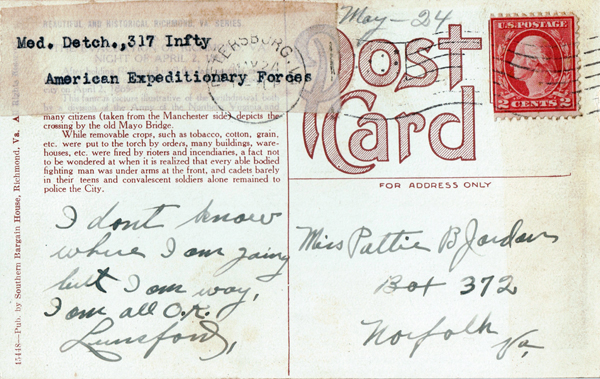 BEAUTIFUL AND HISTORICAL RICHMOND, VA. SERIES.
Med. Detch.,317 Infty
NIGHT OF APRIL 2,
American Expeditionary Forces
many citizens (taken from the Manchester side) depicts the
crossing by the old Mayo Bridge.
While removable crops, such as tobacco, cotton, grain,
etc. were put to the torch by orders, many buildings, ware-
houses, etc. were fired by rioters and incendiaries, a fact not
to be wondered at when it is realized that every able bodied
fighting man was under arms at the front, and cadets barely
in their teens and convalescent soldiers alone remained to
police the City.
I dont know
where I am going
but I am way,
I am all O.K.
Lunsford,
15448—Pub. by Southern Bargain House, Richmond, Va.
PETERSBURG,
May-24
Post
Card
FOR ADDRESS ONLY
U.S. POSTAGE
2 CENTS 2
Miss Pattie B Jordan
Box 372
Norfolk
Va,